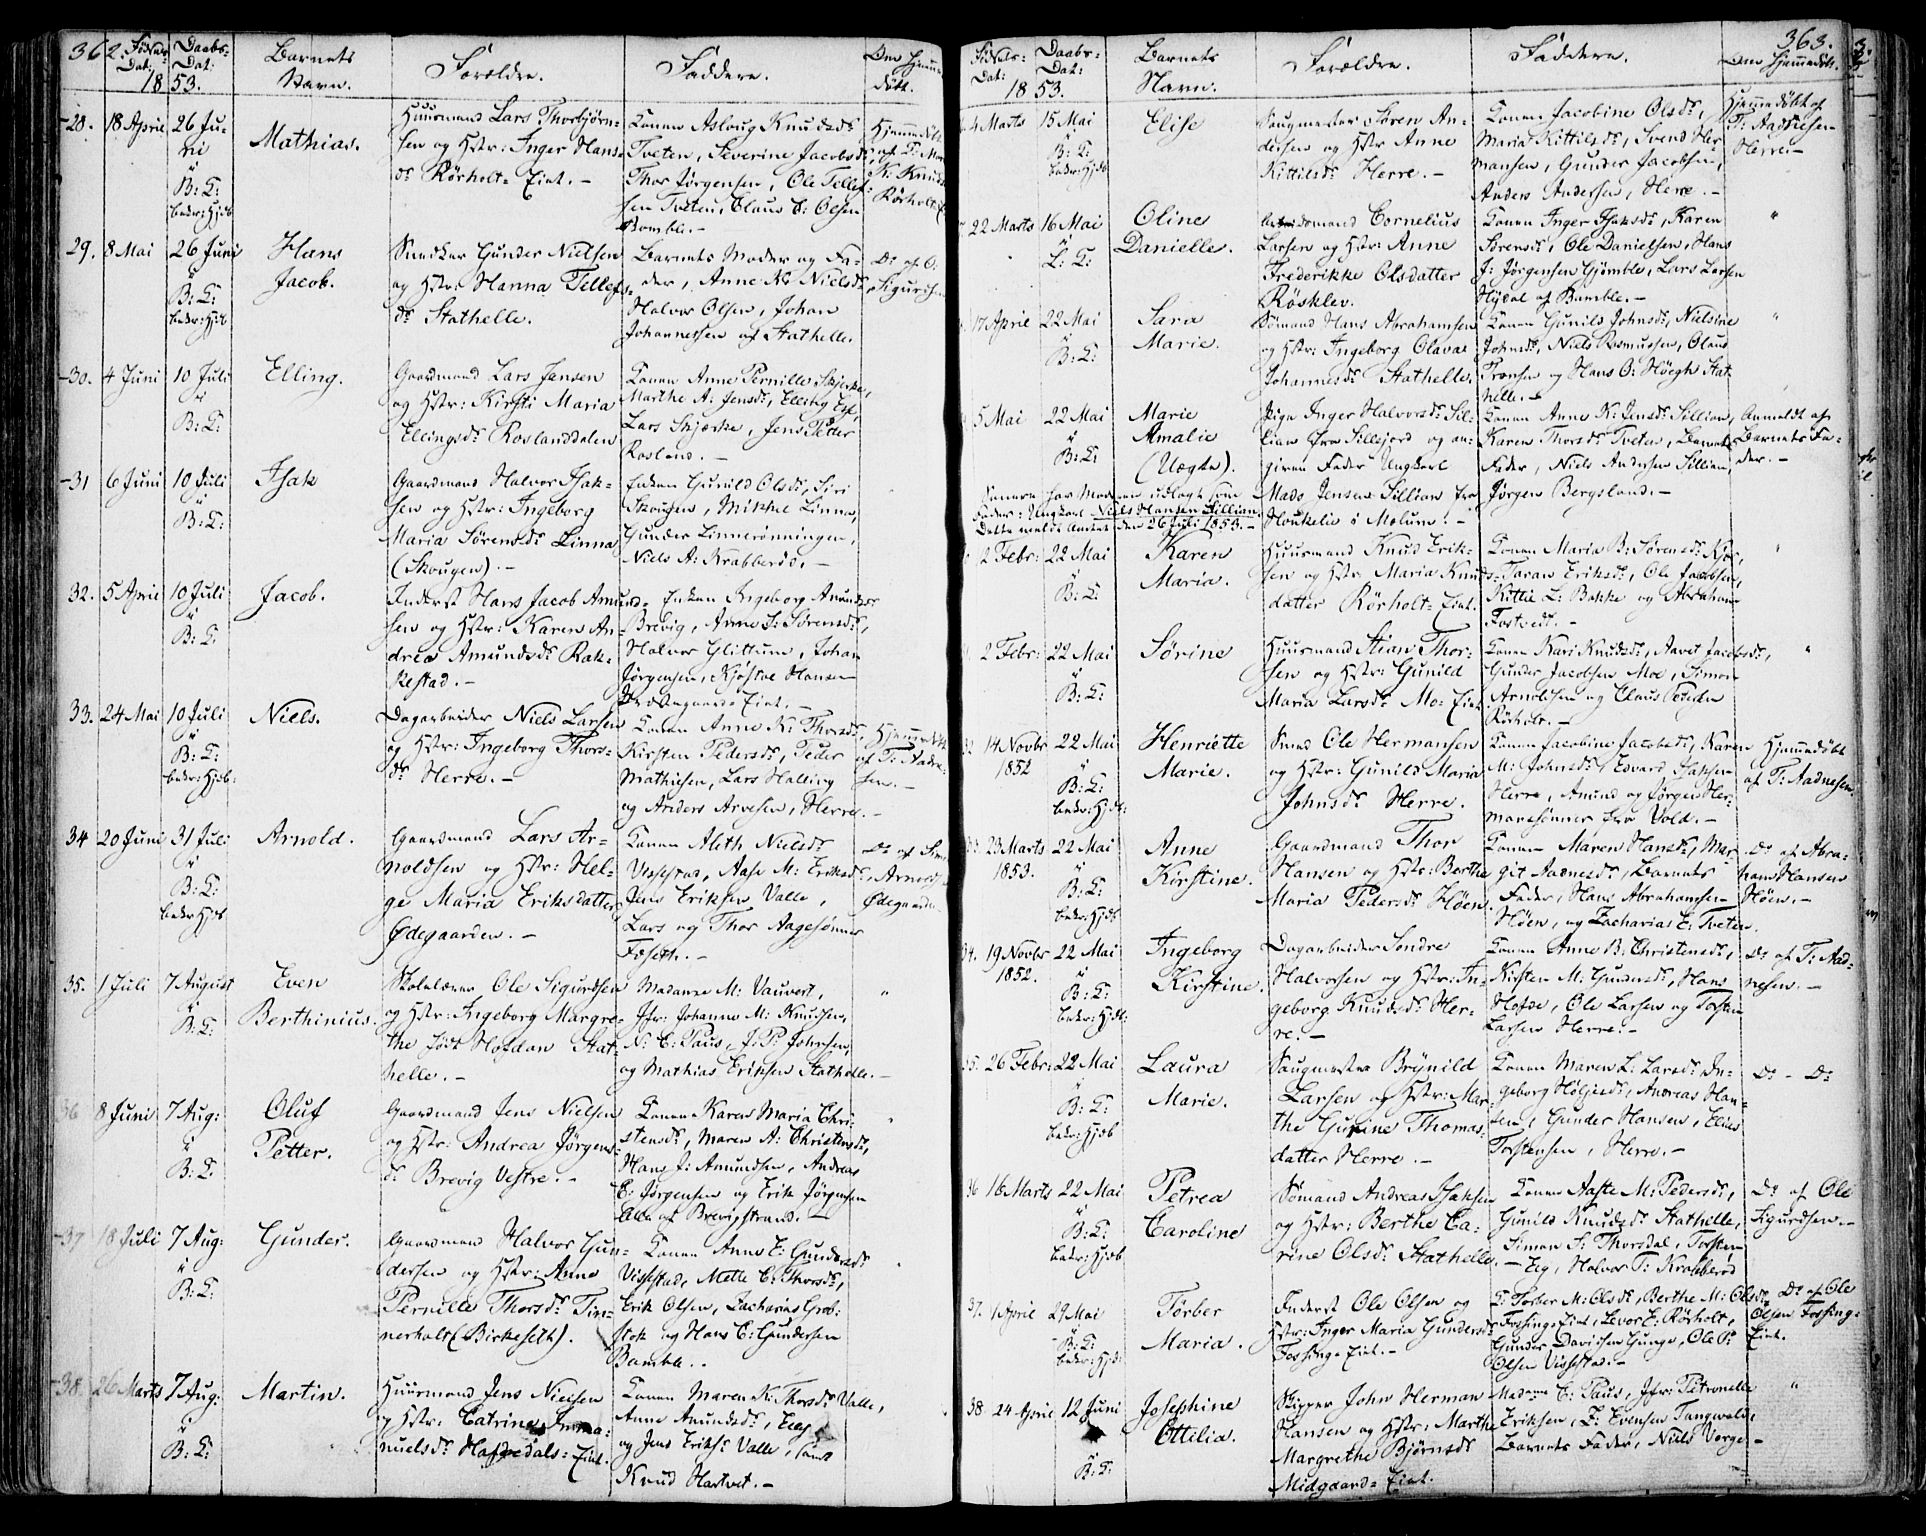 362.
Födsels-
Dat:
Daabs-
Dat:
1853.
Barnets
Navn.
Forældre.
Faddere.
Om Hjemme
döbt.
28. 18 April 26 Ju-
ni
B: C:
bekr: Hjdb
Mathias.
Huusmand Lars Thorbjörn-
sen og Hstr: Inger Hans-
dr Rörholt-Eiet. -
Konen Aslaug Knudsdr
Tveten, Severine Jacobsdr,
Thor Jörgensen, Ole Tellef-
sen Tveten, Claus C: Olsen
Bamble. -
Hjemmedöbt
Rörholt
29. 8 Mai 26 Juni
B: C:
bekr: Hjdb
Hans
Jacob.
Snedker Gunder Nielsen
og Hstr: Hanna Tellefs-
dr Stathelle.
Barnets Moder og Fa-
der, Anne N: Nielsdr
Halvor Olsen, Johan
Johannessen af Stathelle.
Do af O.
Sigurdsen
30. 4 Juni 10 Juli
B: C:
Elling.
Gaardmand Lars Jensen
og Hstr: Kirsti Maria
Ellingsdr Roslanddalen
Konen Anne Pernille Skjerke,
Marthe A: Jensdr, Elling
Lars Skjerke, Jens Petter
Rosland. -
31 6 Juni 10 Juli
B: C:
Isak
Gaardmand Halvor Isak-
sen og Hstr: Ingeborg
Maria Sörensdr Linna
(Skougen). -
Enken Gunild Olsdr, Siri
Skougen, Mikkel Linna,
Gunder Linnerönningen,
Niels A: Krabberöd. -
32. 5 April 10 Juli
B: C:
Jacob.
Inderst Hans Jacob Amund-
sen og Hstr: Karen An-
drea Amundsdr Rak-
kestad. -
Enken Ingeborg Amundsdr
Brevig, Anne S: Sörensdr,
Halvor Glittum, Johan
Jörgensen, Kjöstol Hansen
33. 24 Mai 10 Juli
B: C:
bekr: Hjdb:
Niels.
Dagarbeider Niels Larsen
og Hstr: Ingeborg Thors-
dr Herre. -
Konen Anne N: Thorsdr,
Kirsten Pedersdr, Peder
Mathisen, Lars Halling
og Anders Arvesen, Herre. -
Hjemmedöbt
af T: Aadne-
sen. -
34 20 Juni 31 Juli
B: C:
bekr: Hjdb
Arnold.
Gaardmand Lars Ar-
noldsen og Hstr: Hel-
ge Maria Eriksdatter
Ödegaarden. -
Konen Aleth Nielsdr
Vissestad, Aase M: Eriksdr,
Jens Eriksen Valle,
Lars og Thor Aagesönner
Fosseth. -
Do af
Arnolds
Ödegaarden
35. 1 Juli 7 August
B: C:
Even
Berthinius.
Skolelærer Ole Sigurdsen
og Hstr: Ingeborg Margre-
the födt Hofdan Stat-
helle. -
Madame M: Vauvert,
Jfr: Johanne M: Knudsen,
N: C: Paus, J: P: Johnsen,
og Mathias Eriksen Stathelle. -
"
36 8 Juni 7 Aug:
B: C:
Oluf
Petter.
Gaardmand Jens Nielsen
og Hstr: Andrea Jörgens-
dr Brevig Vestre. -
Konen Karen Maria Chri-
stensdr, Maren A: Christensdr,
Hans J: Amundsen, Andreas
C: Jörgensen og Erik Jörgensen
Alle af Brevigstrand. -
"
37 18 Juli 7 Aug:
B: C:
Gunder.
Gaardmand Halvor Gun-
dersen og Hstr: Anne
Pernille Thorsdr Tin-
nerholt (Birkeseth).
Konen Anne E: Gundersdr
Vissestad, Mette C: Thorsdr,
Erik Olsen, Zacharias Grob-
stok og Hans C: Gundersen
Bamble. -
38. 26 Marts 7 Aug:
B: C:
Martin.
Huusmand Jens Nielsen
og Hstr: Catrine Imma-
nuelsdr Hafsedals-Eiet.
Konen Maren K: Thorsdr Valle,
Anne Amundsdr,
og Jens Eriks: Valle, samt
Knud Hartvet. -
363.
Födsels-
Dat:
Daabs-
Dat:
1853.
Barnets
Navn.
Forældre.
Faddere.
Om Hjemmedöbt.
4 Marts 15 Mai
B: C:
bekr: Hjdb
Elise
Saugmester Sören An-
dersen og Hstr Anne
Kittilsdr Herre. -
Konen Jacobine Olsdr,
Maria Kittilsdr, Svend Her-
mansen, Gunder Jacobsen,
Anders Andersen, Herre. -
Hjemmedöbt af
T: Aadnesen
Herre. -
22 Marts 16 Mai
L: C:
Oline
Danielle.
Cornelius
Larsen og Hstr: Anne
Frederikke Olsdatter
Rösklev.
Konen Inger Isaksdr, Karen
Sörensdr, Ole Danielsen, Hans
J: Jörgensen Gjömble, Lars Larsen
Hydal af Bamble. -
"
17 April 22 Mai
B: C:
Sara
Marie.
Sömand Hans Abrahamsen
og Hstr: Ingeborg Olava
Johannesdr Stathelle.
Konen Gunild Johnsdr, Nielsine
Johnsdr, Niels Rasmussen, Olaus
Tronsen og Hans O: Höegh Stat-
helle. -
"
5 Mai 22 Mai
B: C:
Marie
Amalie
(Uægte).
Pige Inger Halvorsdr Sil-
lian fra Sillejord og an-
given Fader Ungkarl
Mads Jensen Sillian fra
Houkelie i Molum. -
Konen Anne K: Jensdr Sillian,
Karen Thorsdr Tveten, Barnets
Fader, Niels Andersen Sillian,
Jörgen Bergsland. -
Anmeldt af
Barnets Fa-
der. -
Senere har Moderen udlagt som
Fader: Ungkarl Niels Hansen Sillian.
Dette meldt Amtet den 26 Juli 1853. -
2 Febr: 22 Mai
B: C:
Karen
Maria.
Huusmand Knud Erik-
sen og Hstr Maria Knuds-
datter Rörholt-Eiet.
Konen Maria B: Sörensdr
Taran Eriksdr, Ole Jacobsen,
Kittil L: Bakke og Abraham
Fostvedt. -
"
2 Febr: 22 Mai
B: C:
Sörine
Huusmand Stian Thor-
sen og Hstr: Gunild
Maria Larsdr Mo-Eiet
Konen Kari Knudsdr, Aavet Jacobsdr,
Gunder Jacobsen Moe, Simon
Arnoldsen og Claus
Rörholt. -
"
14 Novbr 22 Mai
1852
B: C:
bekr: Hjdb:
Henriette
Marie.
Smed Ole Hermansen
og Hstr: Gunild Maria
Johnsdr Herre.
Konen Jacobine Jacobsdr, Karen
M: Johnsdr, Edvard Isaksen
Herre, Amund og Jörgen Her-
mansönner fra Vold. -
Hjemmedöbt
af T: Aadnesen.
23 Marts 22 Mai
1853.
B: C:
bekr: Hjdb
Anne
Kirstine.
Gaardmand Thor
Hansen og Hstr: Berthe
Maria Pedersdr Höen.
Konen Maren Hansdr, Mar-
git Aadnesdr, Barnets
Fader, Hans Abrahamsen
Höen, og Zacharias E: Tveten.
Do af Abra-
ham Hansen
Höen. -
34. 19 Novbr 22 Mai
1852.
B: C:
bekr: Hjdb:
Ingeborg
Kirstine.
Dagarbeider Söndre
Halvorsen og Hstr: In-
geborg Knudsdr Her-
re. -
Konen Anne B: Christensdr,
Kirsten M: Gundersdr, Hans
Ole Larsen og Torsten
Larsen Herre. -
Do af T: Aad-
nesen. -
35. 26 Febr: 22 Mai
B: C:
bekr: Hjdb
Laura
Marie.
Saugmester Brynild
Larsen og Hstr: Mar-
the Gurine Thomas-
datter Herre. -
Konen Maren L: Larsdr, In-
geborg Höljesdr, Andreas Han-
sen, Gunder Hansen, Elias
Torstensen, Herre. -
Do - Do
36 16 Marts 22 Mai
B: C:
bekr: Hjdb
Petrea
Caroline
Sömand Andreas Isaksen
og Hstr: Berthe Ca-
rine Olsdr Stathelle.
Konen Aaste M: Pedersdr,
Gunild Knudsdr Stathelle,
Simon S: Thorsdal, Torsten
Eeg, Halvor T: Krabberöd
Do af Ole
Sigurdsen. -
37. 1 April 29 Mai
B: C:
bekr: Hjd:
Torber
Maria.
Inderst Ole Olsen og
Hstr: Inger Maria Gundersdr
Fossing-Eiet. -
K: Torber M: Olsdr, Berthe M: Olsdr
Fossing-Eiet, Levor E: Rörholt,
Gunder Davidsen Gunge, Ole P:
Olsen Vissestad. -
Do af Ole
Olsen Fossing-
Eiet.
38 24 April 12 Juni
B: C:
Josephine
Ottilia.
Skipper John Herman
Hansen og Hstr: Marthe
Margrethe Björnsdr
Midgaard-Eiet.
Madame C: Paus, Jfr: Petronelle
Eriksen, E: Evensen Tangvald,
Barnets Fader, Niels Vorge -
"